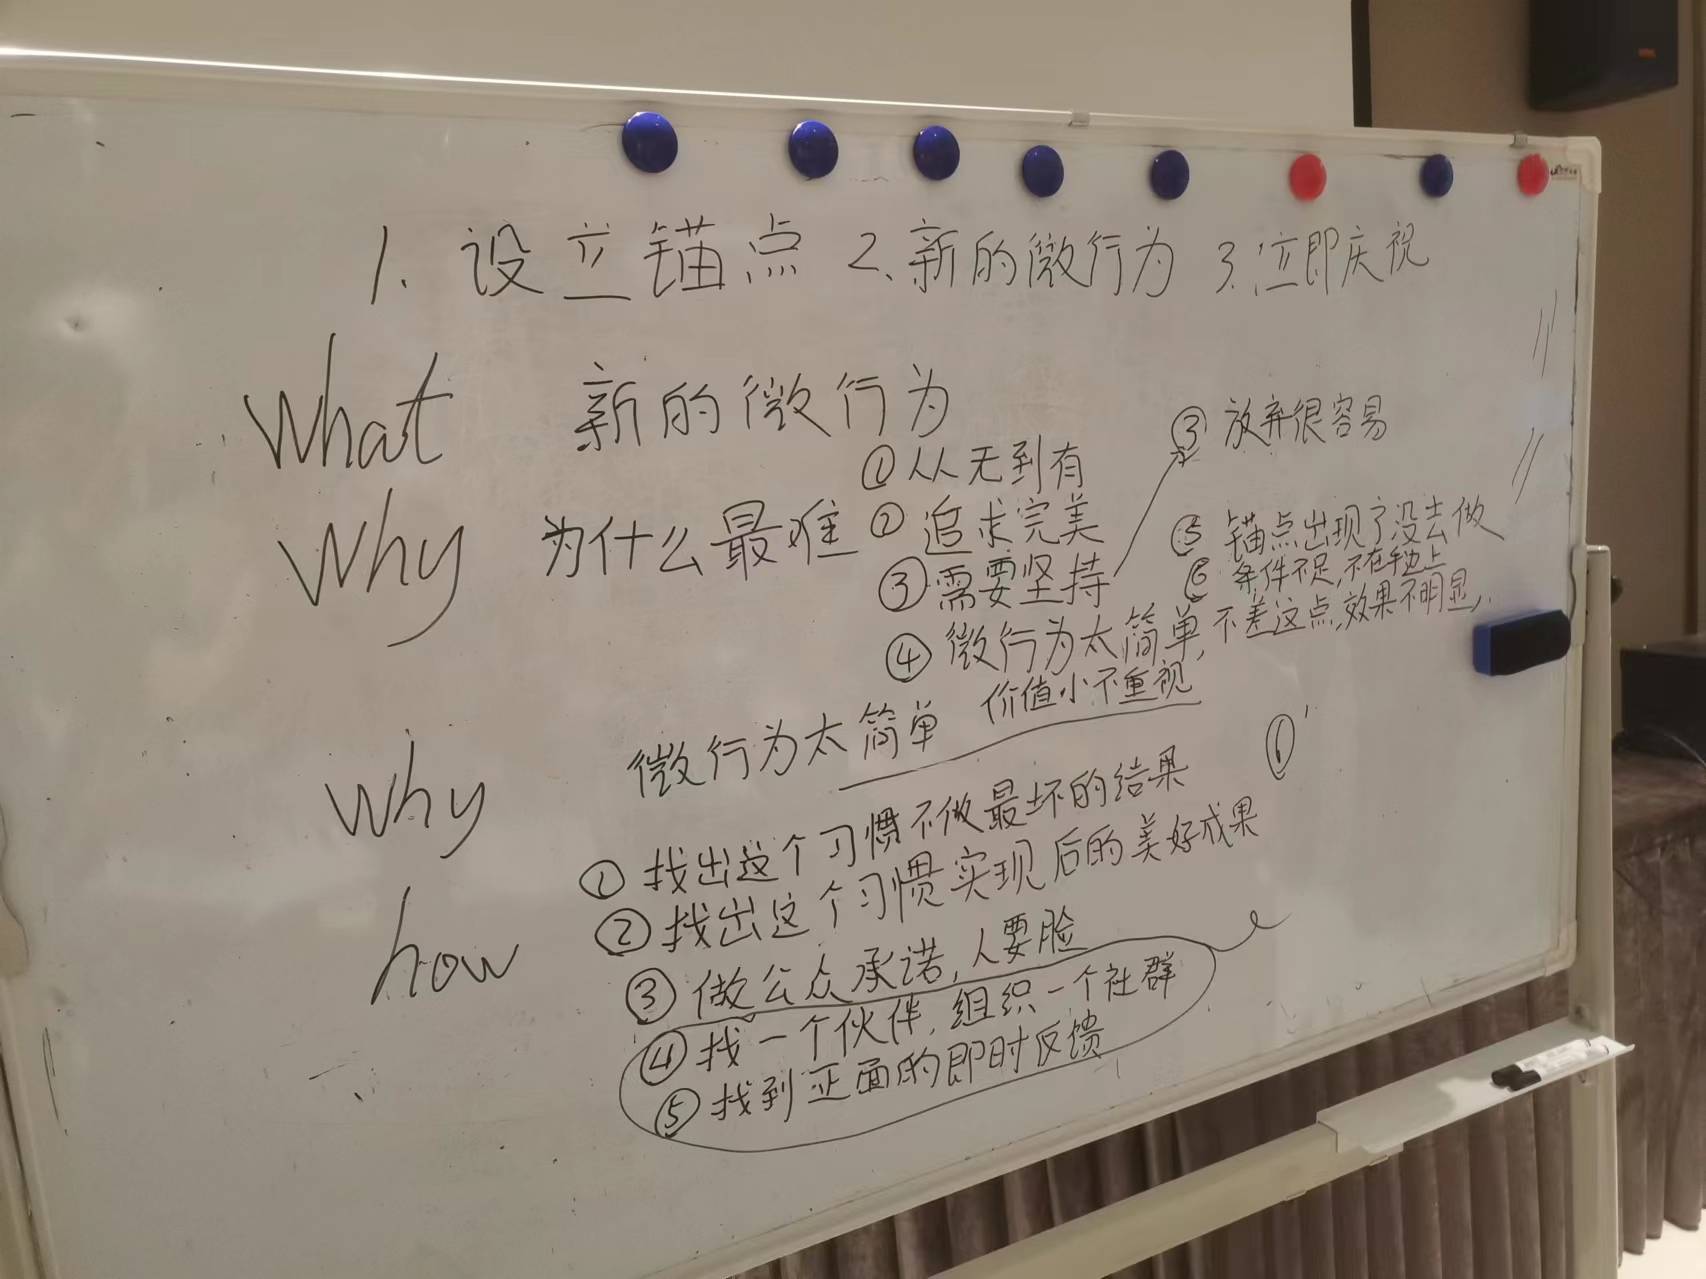 1. 设立锚点 2. 新的微行为 3. 立即庆祝
What 新的微行为
Why 为什么最难
① 从无到有
② 追求完美
③ 需要坚持
④ 微行为太简单, 不差这点, 效果不明显,
价值小不重视
③ 放弃很容易
⑤ 锚点出现了没去做
⑥ 条件不足, 不在手边上
Why 微行为太简单
how
① 找出这个习惯不做最坏的结果
② 找出这个习惯实现后的美好成果
③ 做公众承诺, 人要脸
④ 找一个伙伴, 组织一个社群
⑤ 找到正面的即时反馈
⑥